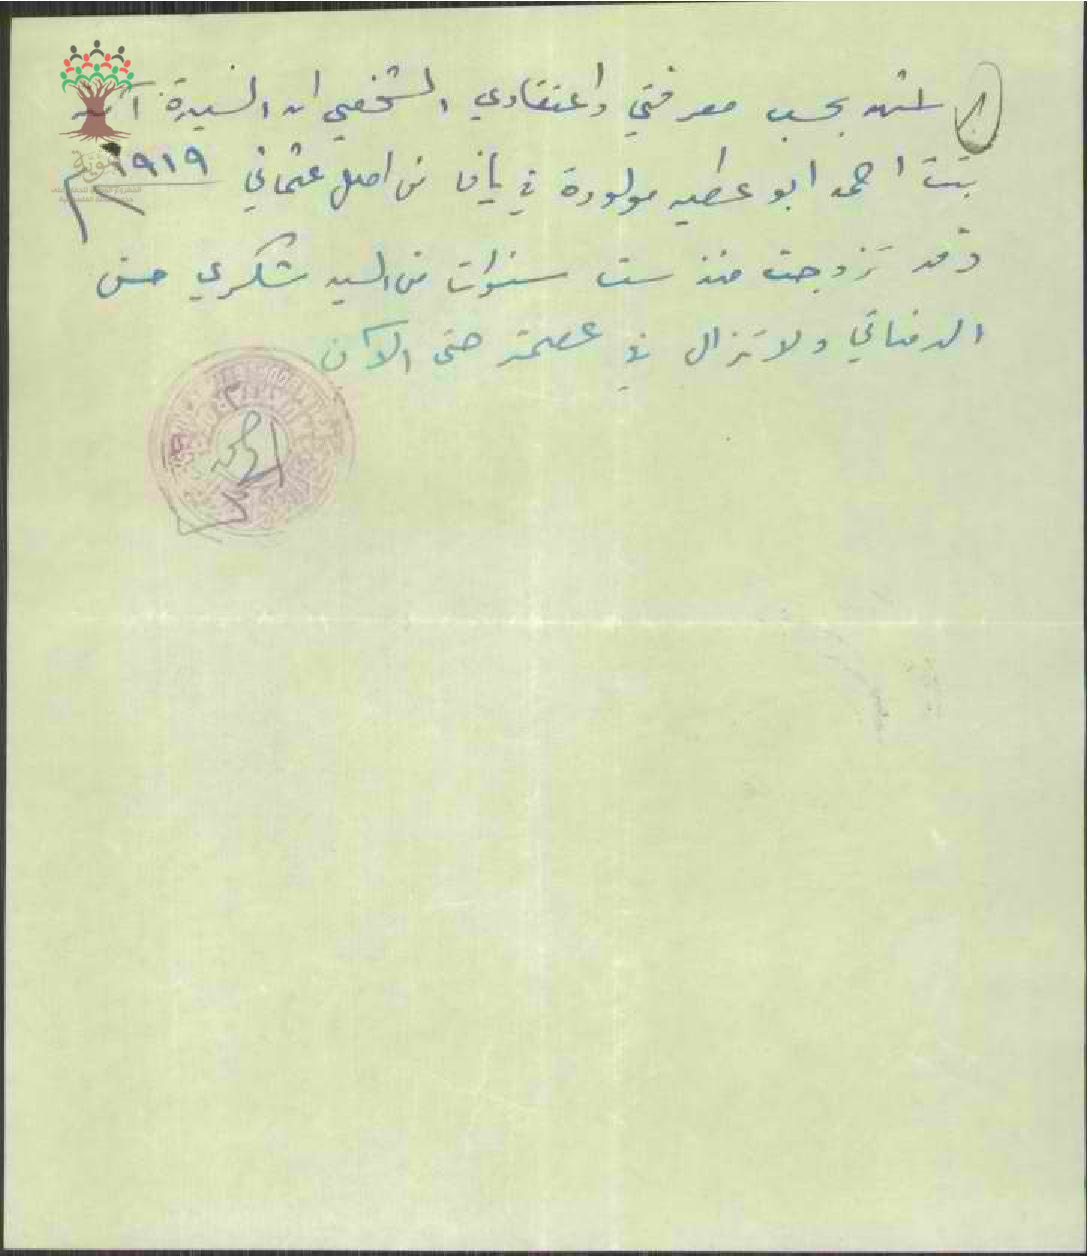 اشهد بحسب معرفتي واعتقادي الشخصي ان السيدة آمنه
بنت احمد ابو عطيه مولودة في يافا من اصل عثماني ١٩١٩
وقد تزوجت منذ ست سنوات من السيد شكري حسن
الدفناتي ولا تزال في عصمته حتى الآن